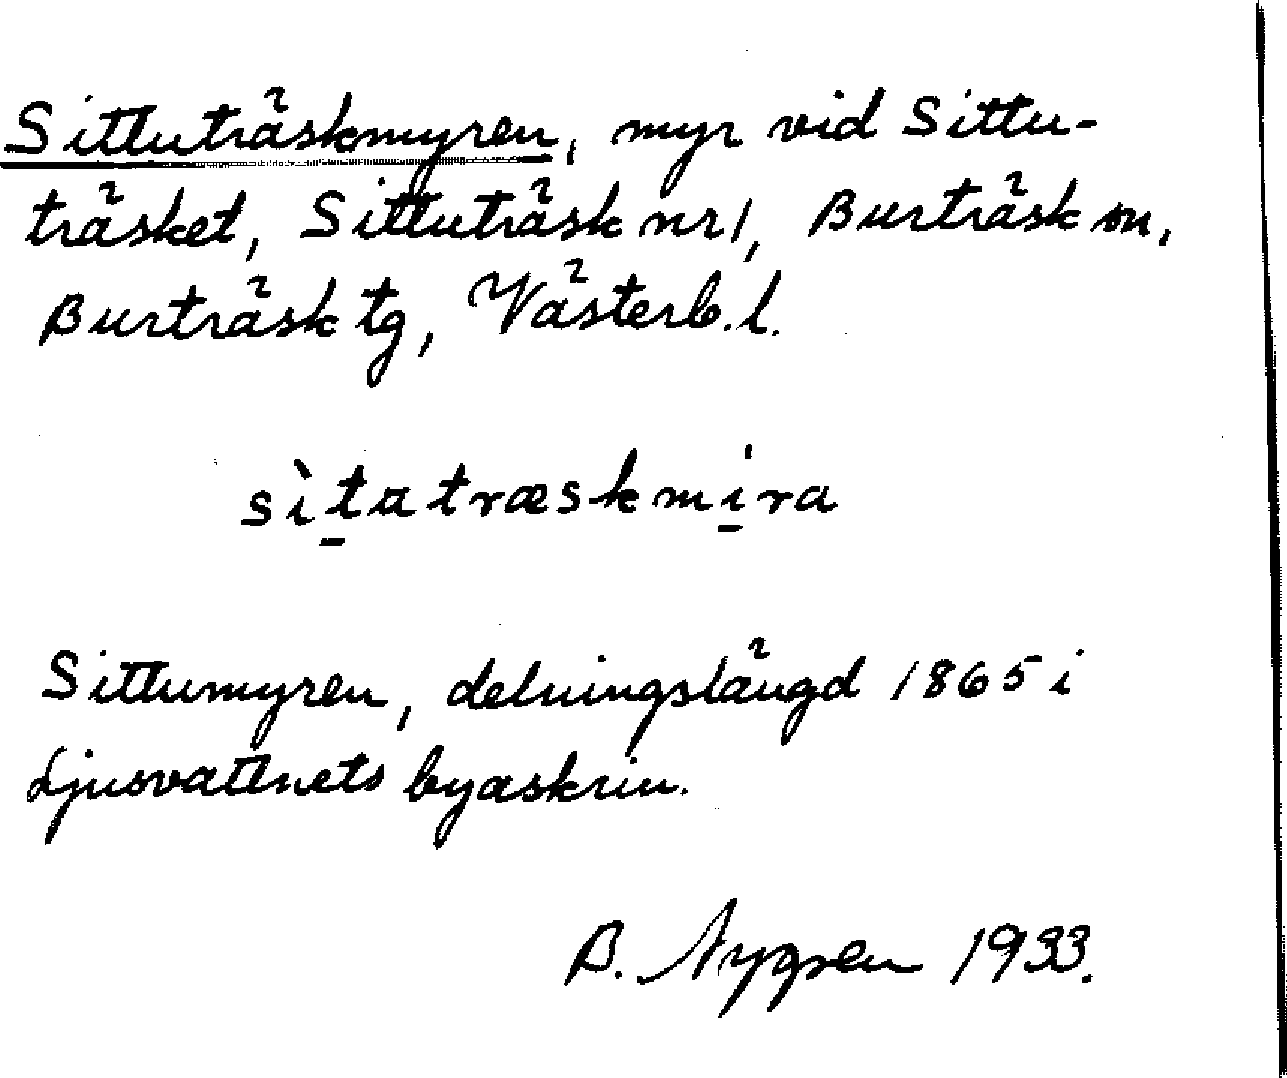 Sittuträskmyren, myr vid Sittu-
träsket, Sittuträsk nr 1, Burträsk sn,
Burträsk tg, Västerb. l.
sìt̠atræskmi̠ra
Sittumyren, delningslängd 1865 i
Ljusvattnets byaskrin.
B. Nygren 1933.